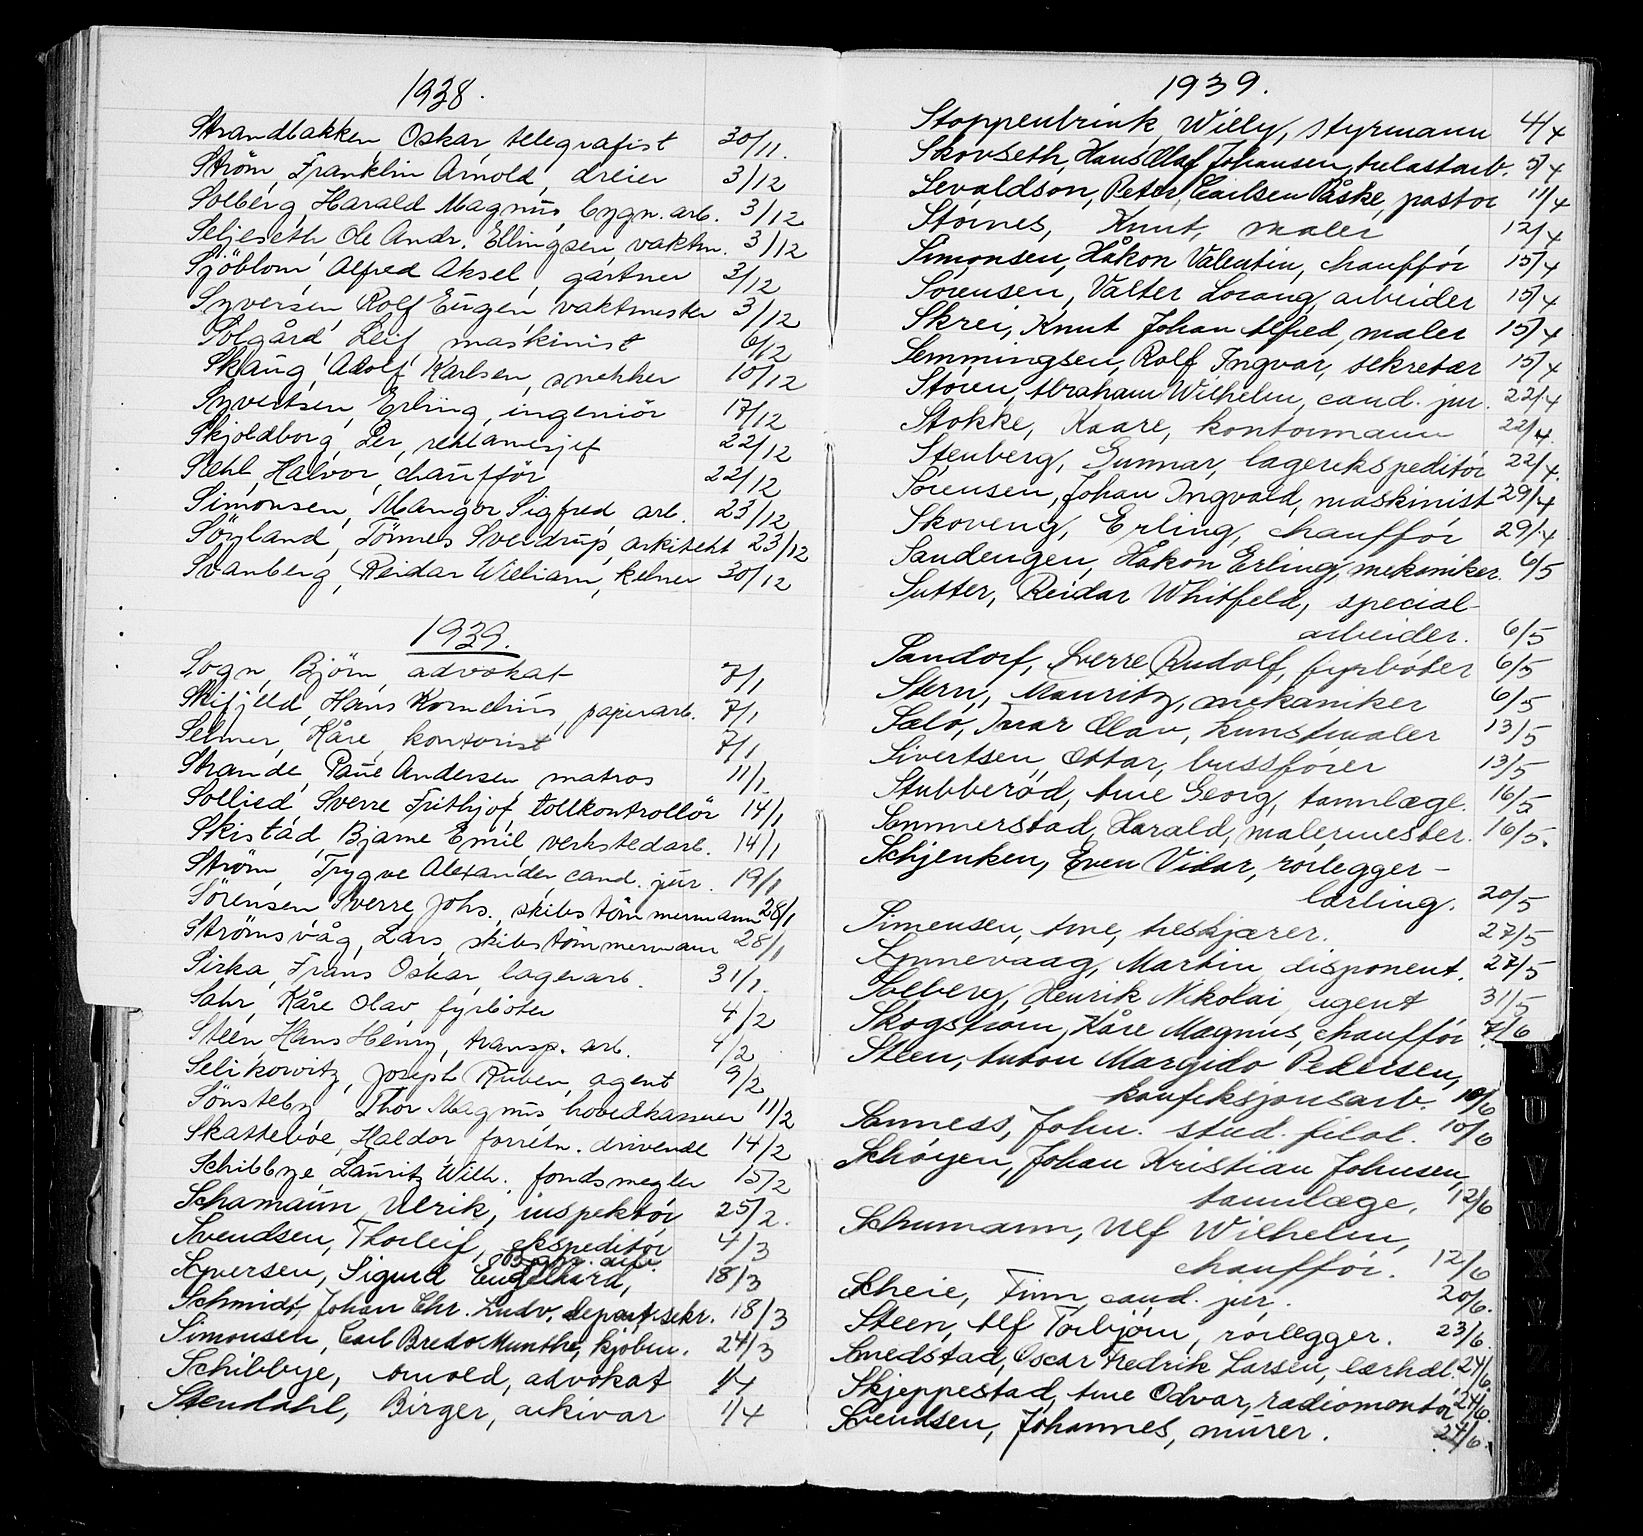 1938.
Strandbakken, Oskar, telegrafist 30/11.
Ström, Franklin Arnold, dreier 3/12
Solberg, Harald Magnus, bygn. arb. 3/12
Seljeseth, Ole Andr. Ellingsen, vaktm. 3/12
Sjöblom, Alfred Aksel, gartner 3/12
Syversen Rolf Eugen vaktmester 3/12
Solgård, Leif maskinist 6/12
Skaug, Adolf Karlsen, snekker 10/12
Syvertsen, Erling, ingeniör 17/12
Skjoldborg, Per, reklamesjef 22/12
Stehl, Halvor, chaufför 22/12
Simonsen, Mangor Sigfred arb. 23/12
Söyland, Tönnes Sverdrup, arkitekt 23/12
Svanberg, Reidar William, kelner 30/12
1939.
Sogn, Björn, advokat 7/1
Skifjeld, Hans Kornelius, papirarb. 7/1
Selmer, Kåre, kontorist 7/1
Strande, Paul Andersen, matros 11/1
Sollied, Sverre Frithjof, tollkontrollör 14/1
Skistad, Bjarne Emil verkstedarb. 14/1
Ström, Trygve Alexander, cand. jur. 19/1
Sörensen Sverre Johs., skibstömmermann 28/1
Strömsvåg, Lars, skibstömmermann 28/1
Sirka, Frans Oskar, lagerarb. 31/1.
Sahr, Kåre Olav fyrböter 4/2
Steen Hans Henry, transp. arb. 4/2
Selikowitz, Joseph Ruben, agent 9/2
Sönsteby, Thor Magnus, hovedkasserer 11/2
Skatteböe, Haldor, forretn. drivende 14/2
Schibbye, Lauritz Wilh. fondsmegler 15/2
Schamaun, Ulrik, inspektør, 25/2.
Svendsen, Thorleif, ekspeditør 4/3
bygn. arb.
Syversen, Sigurd Engelhard, 18/3
Schmidt, Johan Chr. Ludv. depart.sekr. 18/3
Simonsen, Carl Bredo Munthe, kjøbm. 24/3
Schibbye, Arnold, advokat 1/4
Stendahl, Birger, arkivar 1/4
1939.
Stoppenbrink, Willy, styrmann 4/4
Skovseth, Hans Olaf Johansen, trelastarb. 5/4
Sevaldson, Peter Carlsen Påske, pastor 11/4
Størnes, Knut, maler 12/4
Simonsen, Håkon Valentin, chauffør 15/4
Sørensen, Valter Lorang, arbeider 15/4
Skrei, Knut Johan Alfred, maler 15/4
Semmingsen, Rolf Ingvar, sekretær 15/4
Støren, Abraham Wilhelm, cand. jur. 22/4
Stokke, Kaare, kontormann 22/4.
Stenberg, Gunnar, lagerekspeditør 22/4.
Sørensen, Johan Ingvald, maskinist 29/4
Skoveng, Erling, chauffør 29/4
Sandengen, Håkon Erling, mekaniker. 6/5
Sutter, Reidar Whitfeld, special-
arbeider. 6/5
Sandorf, Sverre Rudolf, fyrbøter 6/5
Stern, Mauritz, mekaniker 6/5
Sælo, Ivar Olav, kunstmaler 13/5
Sivertsen, Ottar, bussfører 13/5
Stubberød, Arne Georg, tannlæge. 16/5
Sommerstad, Harald, malermester. 16/5.
Schjenken, Even Vidar, rørlegger-
lærling. 20/5
Simensen, Arne, treskjærer. 27/5
Synnevaag, Martin, disponent. 27/5
Solberg, Henrik Nikolai, agent 31/5
Skogstrøm, Kåre Magnus, chauffør 7/6
Steen, Anton Margido Pedersen,
konfeksjonsarb. 10/6
Sanness, John. stud. filol. 10/6
Schøyen, Johan Kristian Johnsen,
tannlæge. 12/6
Schumann, Ulf Wilhelm,
chauffør. 12/6
Scheie, Finn, cand. jur. 20/6.
Steen, Alf Torbjørn, rørlegger. 23/6
Smedstad, Oscar Fredrik Larsen, lærhdl. 24/6.
Skjeppestad, Arne Odvar, radiomontør 24/6.
Svendsen, Johannes, murer. 24/6.
T
U
V
W
X
Y
Z